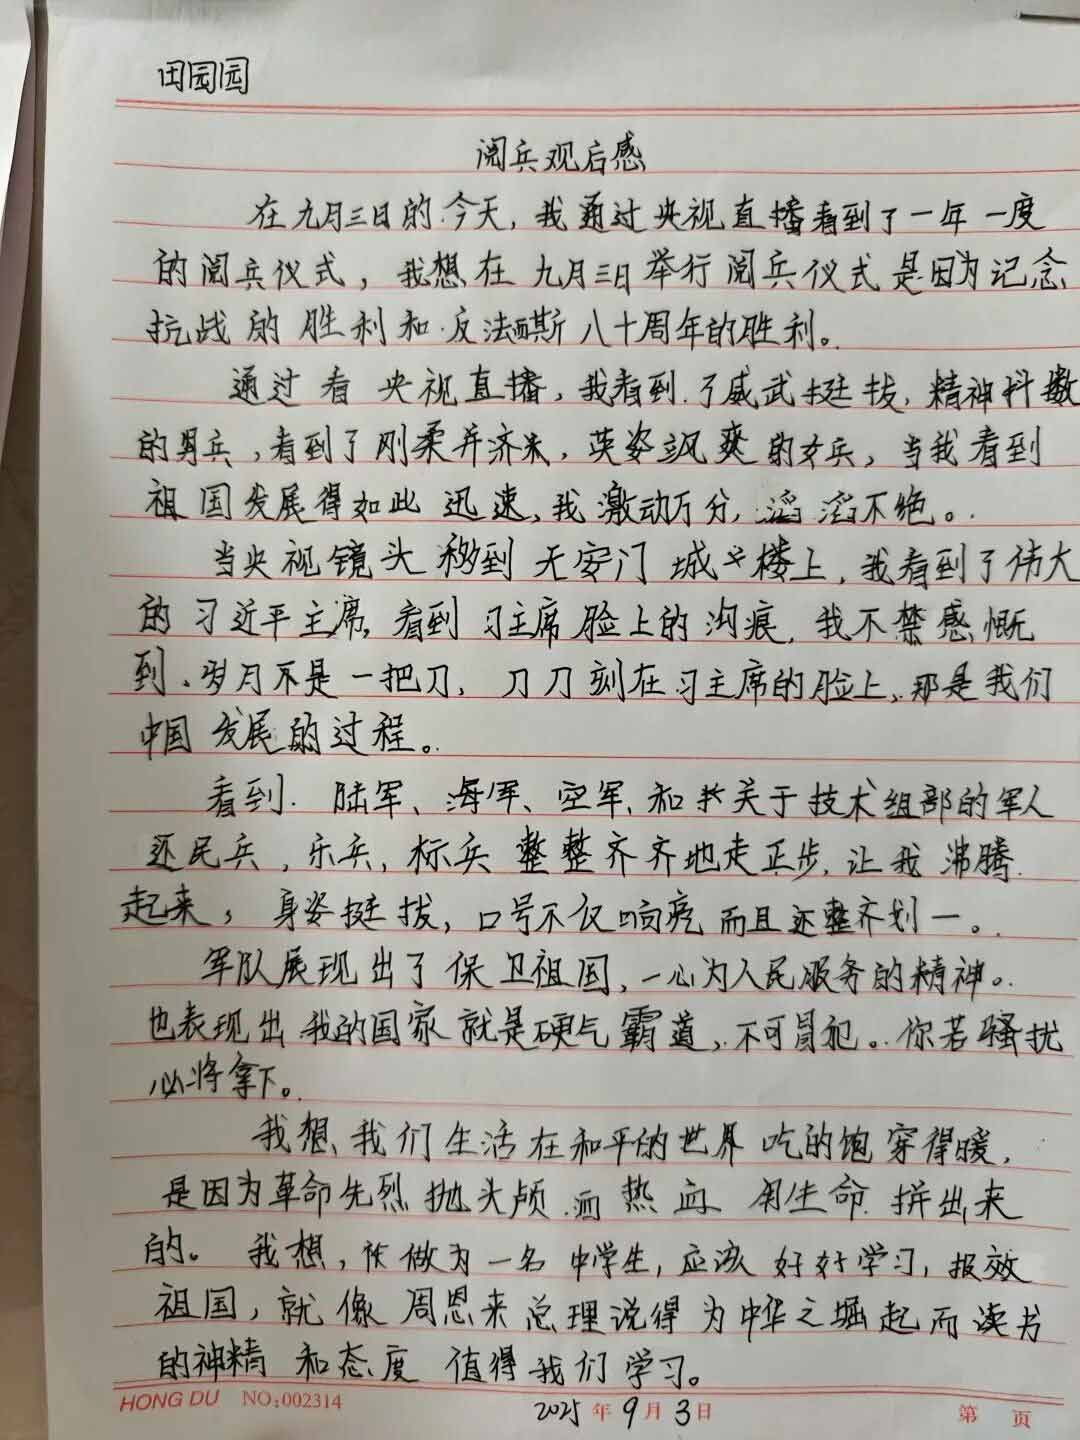 田园园
阅兵观后感
在九月三日的今天，我通过央视直播看到了一年一度
的阅兵仪式，我想在九月三日举行阅兵仪式是因为记念
抗战的胜利和反法西斯八十周年的胜利。
通过看央视直播，我看到了威武挺拔，精神抖擞
的男兵，看到了刚柔并济，英姿飒爽的女兵，当我看到
祖国发展得如此迅速，我激动万分，滔滔不绝。
当央视镜头移到天安门城楼上，我看到了伟大
的习近平主席，看到习主席脸上的沟痕，我不禁感慨
到、岁月不是一把刀，刀刀刻在习主席的脸上，那是我们
中国发展的过程。
看到陆军、海军、空军、和关于技术组部的军人
还民兵，乐兵，标兵整整齐齐地走正步，让我沸腾
起来，身姿挺拔，口号不仅响亮而且还整齐划一。
军队展现出了保卫祖国，一心为人民服务的精神。
也表现出我的国家就是硬气霸道，不可冒犯。你若骚扰
必将拿下。
我想、我们生活在和平的世界吃的饱穿得暖，
是因为革命先烈抛头颅洒热血用生命拼出来
的。我想，做为一名中学生，应该好好学习，报效
祖国，就像周恩来总理说得为中华之堀起而读书
的神精和态度值得我们学习。
HONG DU NO:002314 2025年9月3日 第 页